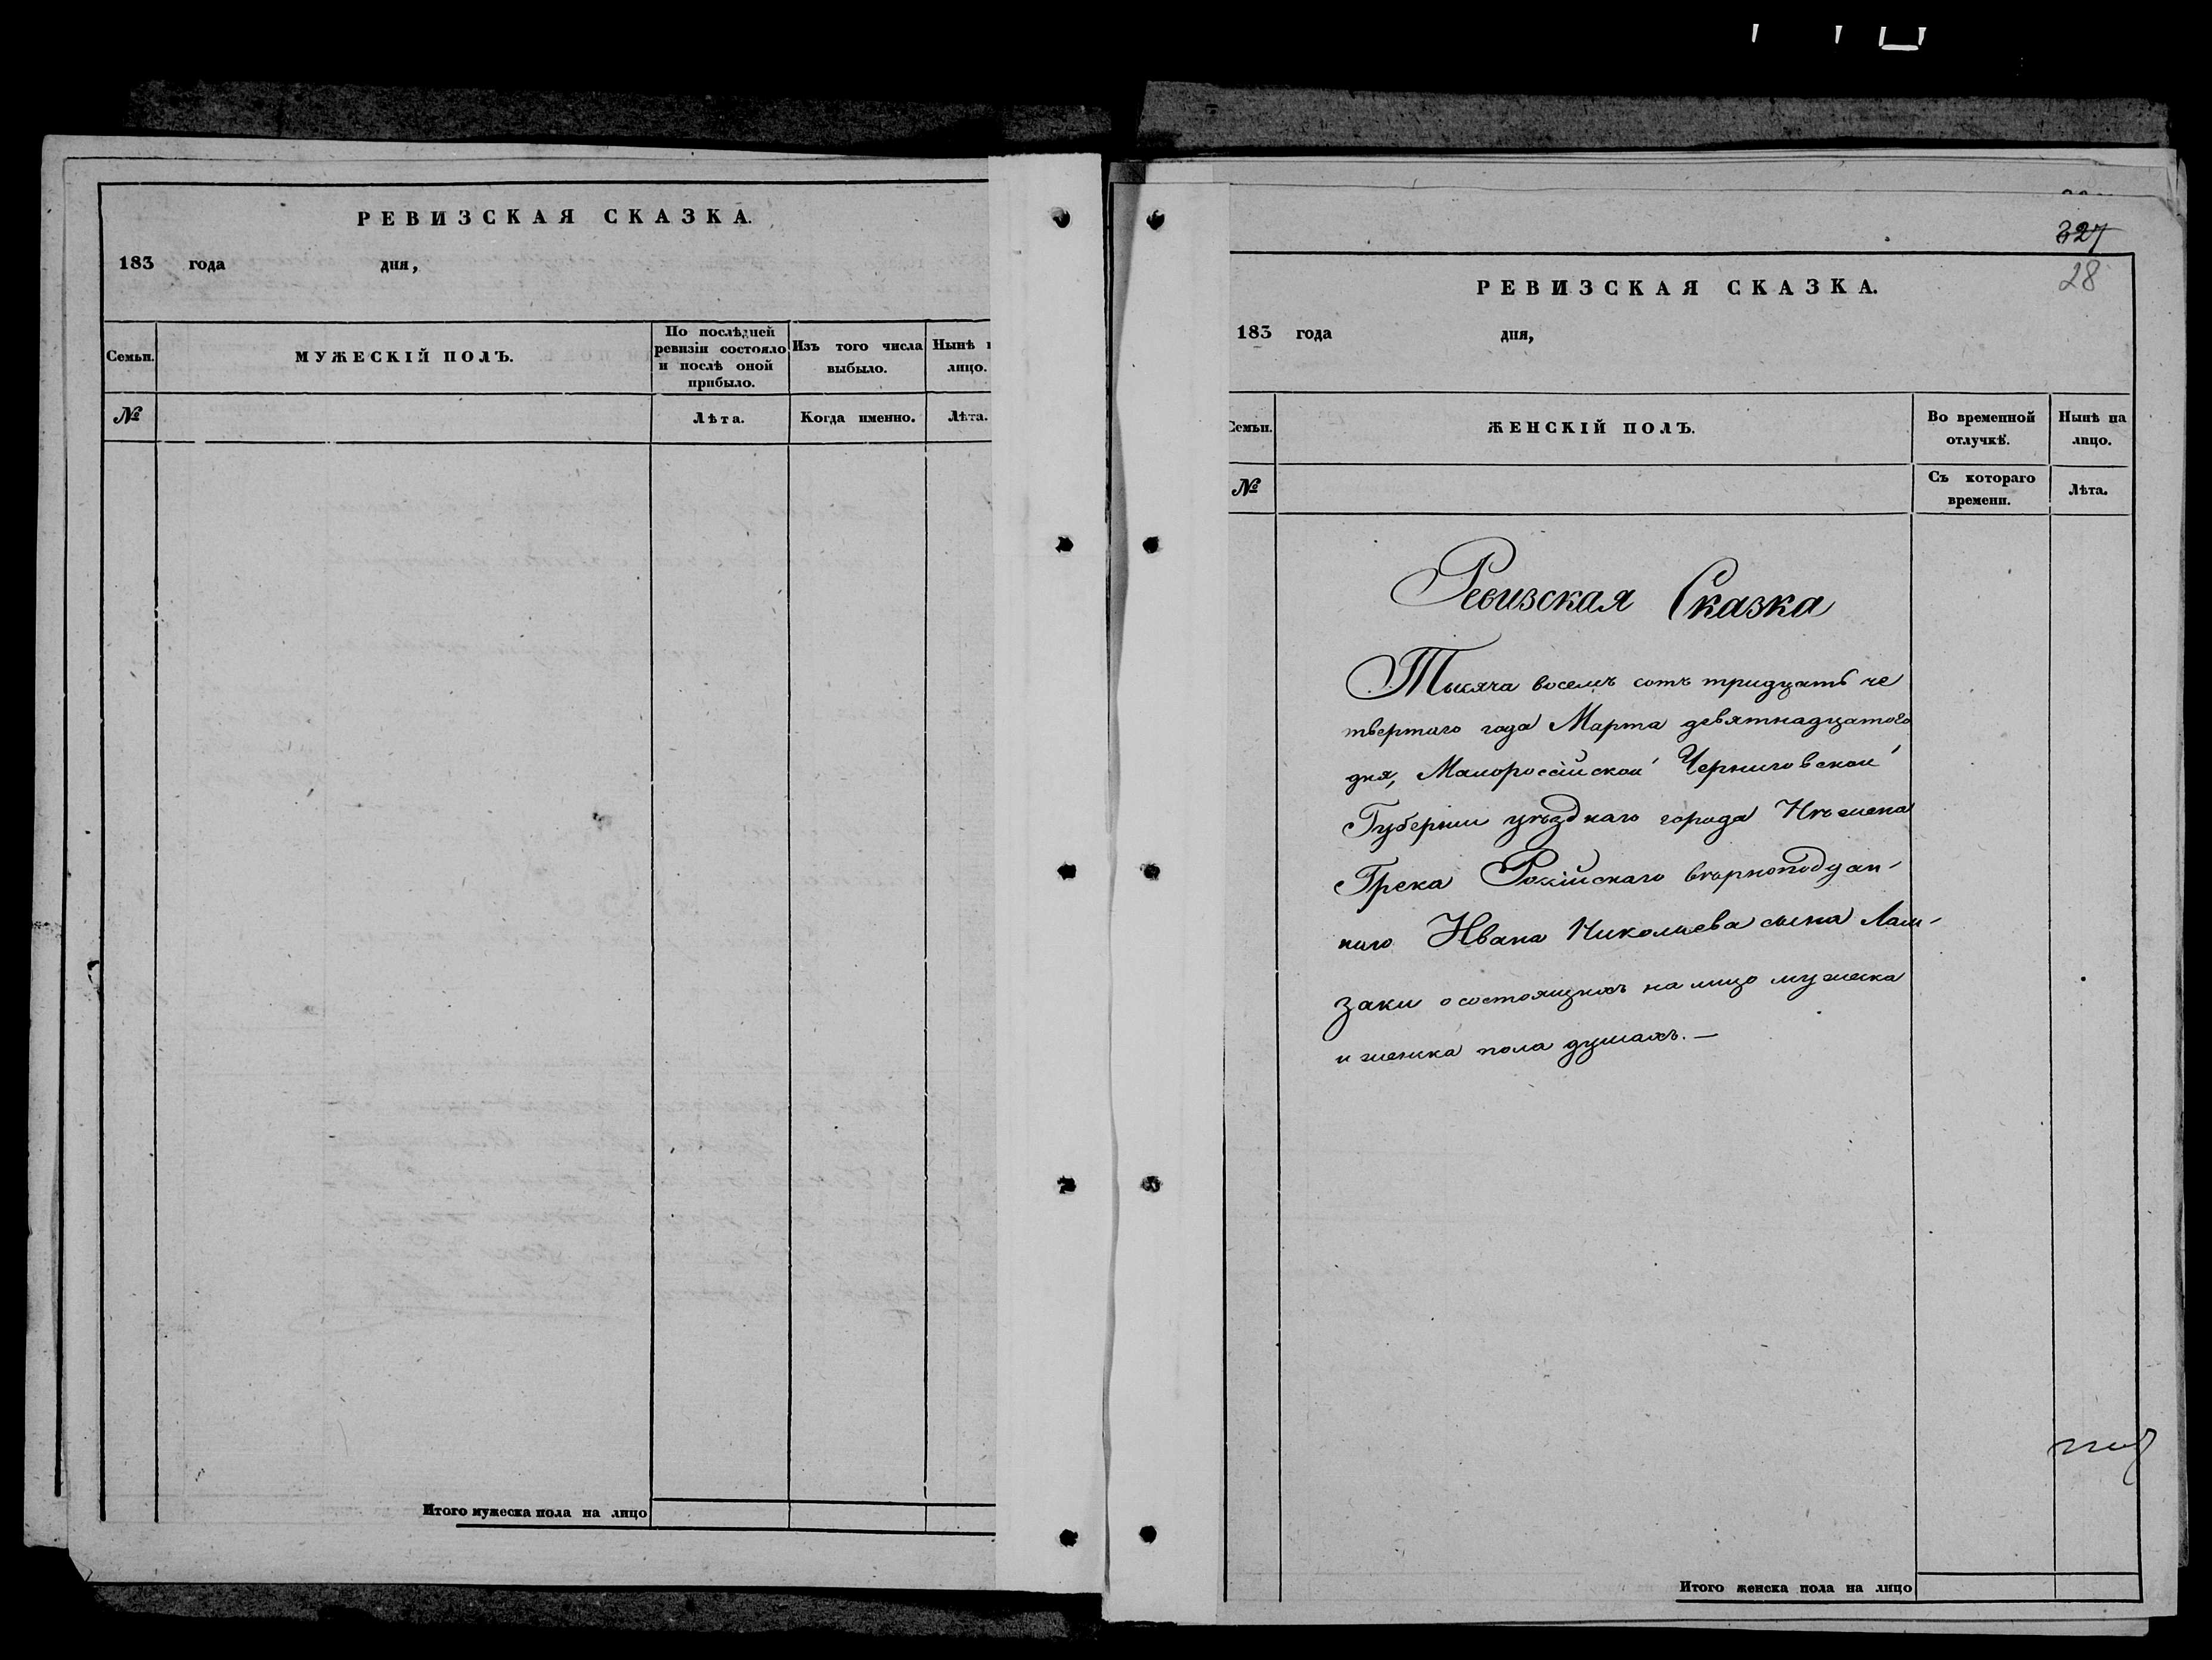 РЕВИЗСКАЯ СКАЗКА.
183 года дня,
Семьи.
МУЖЕСКІЙ ПОЛЪ.
По послѣдней
ревизіи состояло
и послѣ оной
прибыло.
Изъ того числа
выбыло.
Нынѣ
лицо.
№
Лѣта.
Когда именно.
Лѣта.
Итого мужеска пола на лицо
327
28
РЕВИЗСКАЯ СКАЗКА.
183 года дня,
Семьи.
ЖЕНСКІЙ ПОЛЪ.
Во временной
отлучкѣ.
Нынѣ на
лицо.
№
Съ котораго
времени.
Лѣта.
Ревизская Сказка
Тысяча восемъ сотъ тридцать че
твертаго года Марта девятнадцатого
дня, Малороссійской Черниговской
Губерніи уѣзднаго города Нѣжена
Грека Россійскаго вѣрноподдан-
наго Ивана Николаева сына Лам-
заки о состоящихъ на лицо мужеска
и женска пола душахъ. —
Итого женска пола на лицо